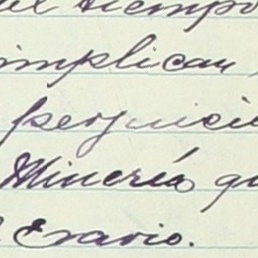 el tiempo
implican,
perjuici
Minería qu
l Erario.